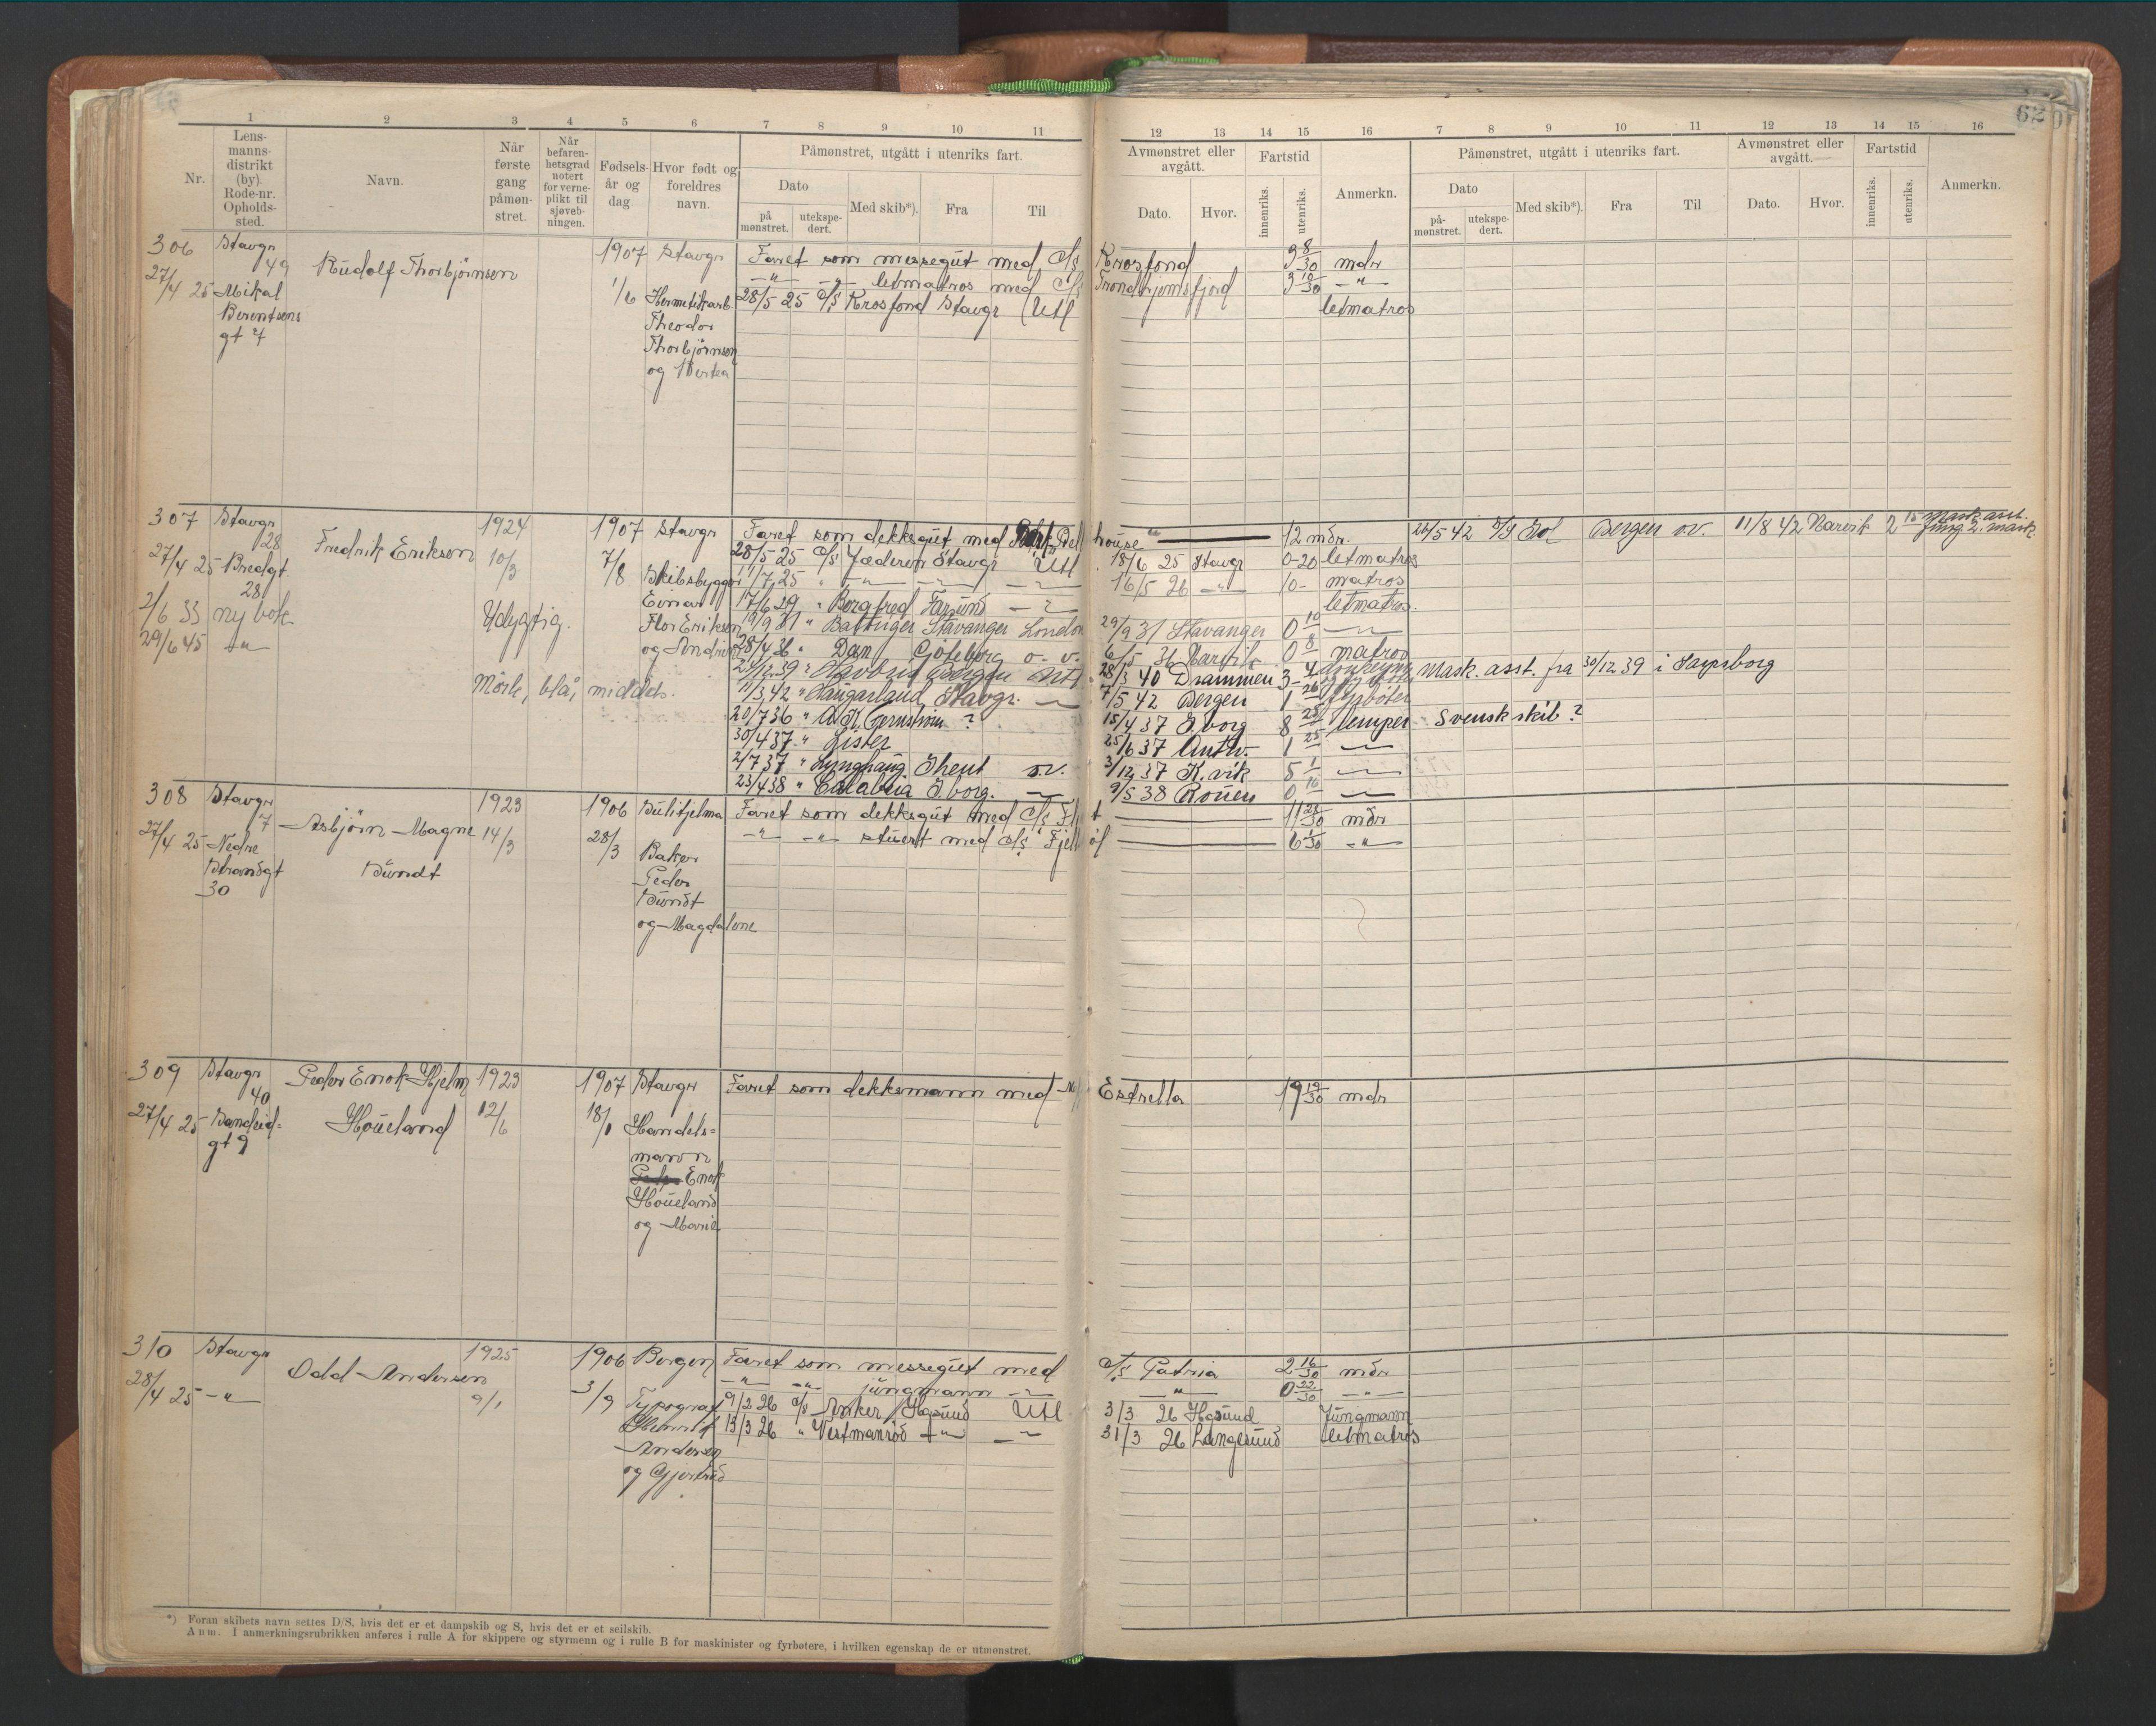 62
1 2 3 4 5 6 7 8 9 10 11
12 13 14 15 16 7 8 9 10 11 12 13 14 15 16
Nr.
Lens-
manns-
distrikt
(by).
Rode-nr.
Opholds-
sted.
Navn.
Når
første
gang
påmøn-
stret.
Når
befaren-
hetsgrad
notert
for verne-
plikt til
sjøveb-
ningen.
Fødsels-
år og
dag
Hvor født og
foreldres
navn.
Påmønstret, utgått i utenriks fart.
Dato
på
mønstret.
utekspe-
dert.
Med skib*).
Fra
Til
Avmønstret eller
avgått.
Dato.
Hvor.
Fartstid
innenriks.
utenriks.
Anmerkn.
Påmønstret, utgått i utenriks fart.
Dato
på-
mønstret.
utekspe-
dert.
Med skib*).
Fra
Til
Avmønstret eller
avgått.
Dato.
Hvor.
Fartstid
innenriks.
utenriks.
Anmerkn.
306 Stavgr 49 Rudolf Thorbjörnsen 1907 Stavgr Faret som messegut med D/S Krosfond 3 8/30 mdr
27/4 25 Mikal 1/6 Hermetikarb. -"- -"- letmatros med D/S Trondhjemsfjord 3 10/30 -"-
Berentsens Theodor 28/5 25 D/S Krosfond Stavgr Utl letmatros
gt 7 Thorbjörnsen
og Bertea
307 Stavgr 28 Fredrik Eriksen 1924 1907 Stavgr Faret som dekksgut med 12 mdr. 26/5 42 Bergen o.v. 11/8 42 Narvik 2 15 Mask. asst.
27/4 25 Bredgt. 10/3 7/8 Skibsbygger 28/5 25 D/S Jæderen Stavgr Utl 18/6 25 Stavgr 0-20 letmatros
28 11/7 25 " -"- -"- 16/5 26 -"- 10- matros
2/6 33 ny bok. Udygtig. Einar 17/6 29 " Borgfred Farsund letmatros.
29/6 45 -"- Flor Eriksen 19/9 31 " Stavanger London 29/9 31 Stavanger 0 10
og 28/4 36 " Dan Göteborg o. v. 6/5 36 Narvik 0 8 matros
Mörk, blå, middels. Bergen Utl 28/3 40 Drammen 3-4 Mask. asst. fra 30/12 39 i Sarpsborg
11/3 42 " Haugarland Stavgr. 7/5 42 Bergen 1 26 fyrböter
20/7 36 " A. K. Fernström ? 15/4 37 8 25 lemper Svensk skib?
30/4 37 " Lister 25/6 37 Antw. 1 25
2/7 37 " Lynghaug Ghent o.v. 3/12 37 K. vik 5 1
23/4 38 " Calabria 9/5 38 Rouen 0 16
308 Stavgr 7 Asbjörn Magne 1923 1906 Sulitjelma Faret som dekksgut med D/S 11 28/30 mdr
27/4 25 Nedre Bundt 14/3 28/3 Baker -"- -"- stuert med D/S Fjell 6 1/30 -"-
Strandgt Peder
30 Bundt
og Magdalene
309 Stavgr 40 Peder Enok Hjelm 1923 1907 Stavgr Faret som dekksmann med M/ Estrella 19 19/30 mdr
27/4 25 Sandeid= Houeland 12/6 18/1 Handels=
gt 9 mann
Enok
Houeland
og Marie
310 Stavgr Odd Andersen 1925 1906 Bergen Faret som messegut med D/S Patria 2 16/30 mdr
28/4 25 -"- 9/1 3/9 Typograf -"- -"- jungmann -"- -"- 0 22/30 -"-
Henrik 9/2 26 D/S Anker Hgsund Utl 3/3 26 Hgsund Jungmann
Andersen 13/3 26 " Vestmanröd -"- 31/3 26 Langesund letmatros
og Gjertrud
*) Foran skibets navn settes D/S, hvis det er et dampskib og S, hvis det er et seilskib.
Anm. I anmerkningsrubrikken anføres i rulle A for skippere og styrmenn og i rulle B for maskinister og fyrbøtere, i hvilken egenskap de er utmønstret.